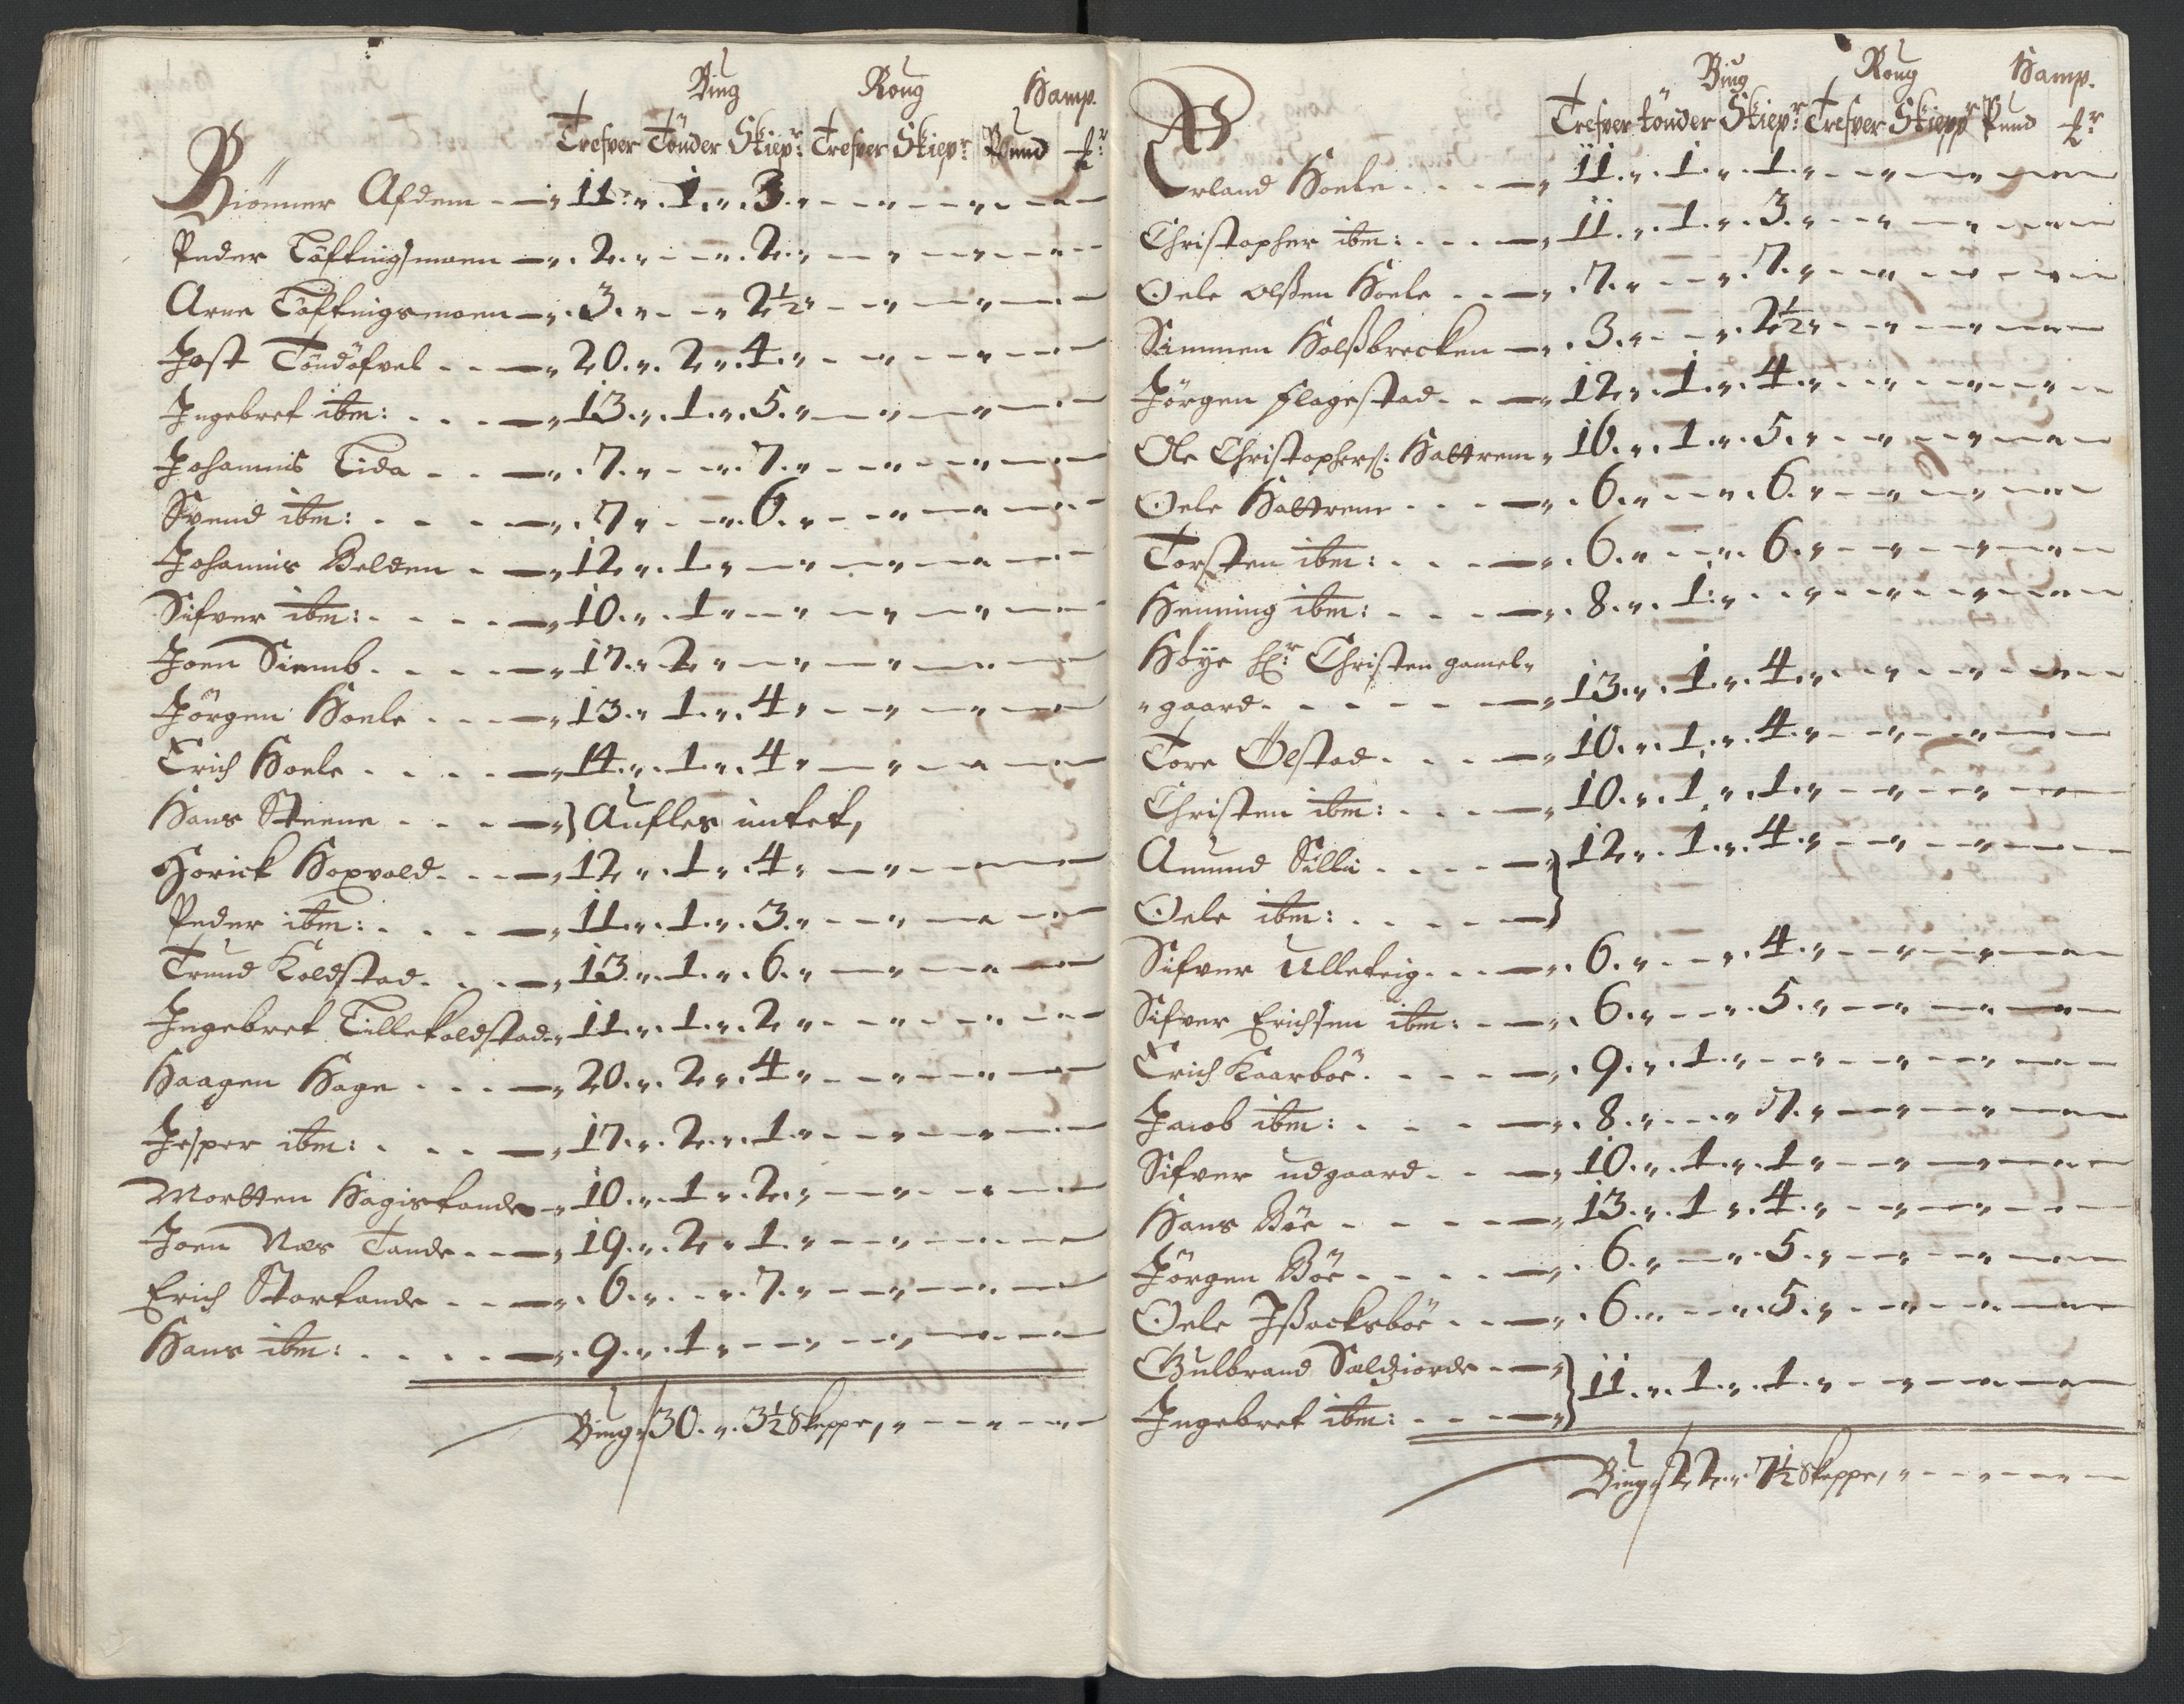 Biug Roug Hamp.
Trefver Tönder Skiepr: Trefver Skiepr: Pund
Biönner Afdem - — „ 11 „ 1 „ 3 „
Peder Töfting moen — „ 2 „ - - „ 2 „
Arne Töftingsmoen — „ 3 „ - - „ 2½ „
Jost Töndöfvel - - — „ 20 „ 2 „ 4 „
Ingebret ibm: - - - — „ 13 „ 1 „ 5 „
Johannis Lida - - — „ 7 „ - - „ 7 „
Svend ibm: - - - — „ 7 „ - - „ 6 „
Johannis Belden - — „ 12 „ 1 „
Sifver ibm: - - - — „ 10 „ 1 „
Joen Siemb - - - — „ 17 „ 2 „
Jörgen Hoele - - - — „ 13 „ 1 „ 4 „
Erich Hoele - - - — „ 14 „ 1 „ 4 „
Hans Steene - - - — „ } Aufles intet,
Horick Hoxvold - - — „ 12 „ 1 „ 4 „
Peder ibm: - - - — „ 11 „ 1 „ 3 „
Trund Koldstad - - — „ 13 „ 1 „ 6 „
Ingebret Lillekoldstad „ 11 „ 1 „ 2 „
Haagen Hage - - - — „ 20 „ 2 „ 4 „
Jesper ibm: - - - — „ 17 „ 2 „ 1 „
Mortten Hagistande - „ 10 „ 1 „ 2 „
Joen Næs Tande - - — „ 19 „ 2 „ 1 „
Erich Stortande - - — „ 6 „ - - „ 7 „
Hans ibm: - - - — „ 9 „ 1 „
Biug 30 „ 3½ Skeppe, „
Biug Roug Hamp.
Trefver tönder Skiepr: Trefver Skiepp Pund
Erland Hoele - - - — „ 11 „ 1 „ 1 „
Christopher ibm: - - - — „ 11 „ 1 „ 3 „
Oele olßen Hoele - - — „ 7 „ - - „ 7 „
Simmen Holßbrecken — „ 3 „ - - „ 2½ „
Jörgen Flagestad - - — „ 12 „ 1 „ 4 „
Ole Christophers: Hattrem „ 16 „ 1 „ 5 „
Oele Hattrem - - - — „ 6 „ - - „ 6 „
Torsten ibm: - - - — „ 6 „ - - „ 6 „
Henning ibm: - - - — „ 8 „ 1 „
Höye Hr: Christen gamel„
„gaard - - - - — „ 13 „ 1 „ 4 „
Tore Ölstad - - - — „ 10 „ 1 „ 4 „
Christen ibm: - - - — „ 10 „ 1 „ 1 „
Amund Silli - - - — } 12 „ 1 „ 4 „
Oele ibm: - - - — }
Sifver Ulleteig - - — „ 6 „ - - „ 4 „
Sifver Erichsen ibm: - — „ 6 „ - - „ 5 „
Erich Kaarböe - - - — „ 9 „ 1 „
Jacob ibm: - - - — „ 8 „ - - „ 7 „
Sifver udgaard - - — „ 10 „ 1 „ 1 „
Hans Böe - - - — „ 13 „ 1 „ 4 „
Jörgen Böe - - - — „ 6 „ - - „ 5 „
Oele Ißacksböe - - — „ 6 „ - - „ 5 „
Gulbrand Sælðiorde - — „ } 11 „ 1 „ 1 „
Ingebret ibm: - - - — „ }
Biug 22 „ 7½ Skeppe, „